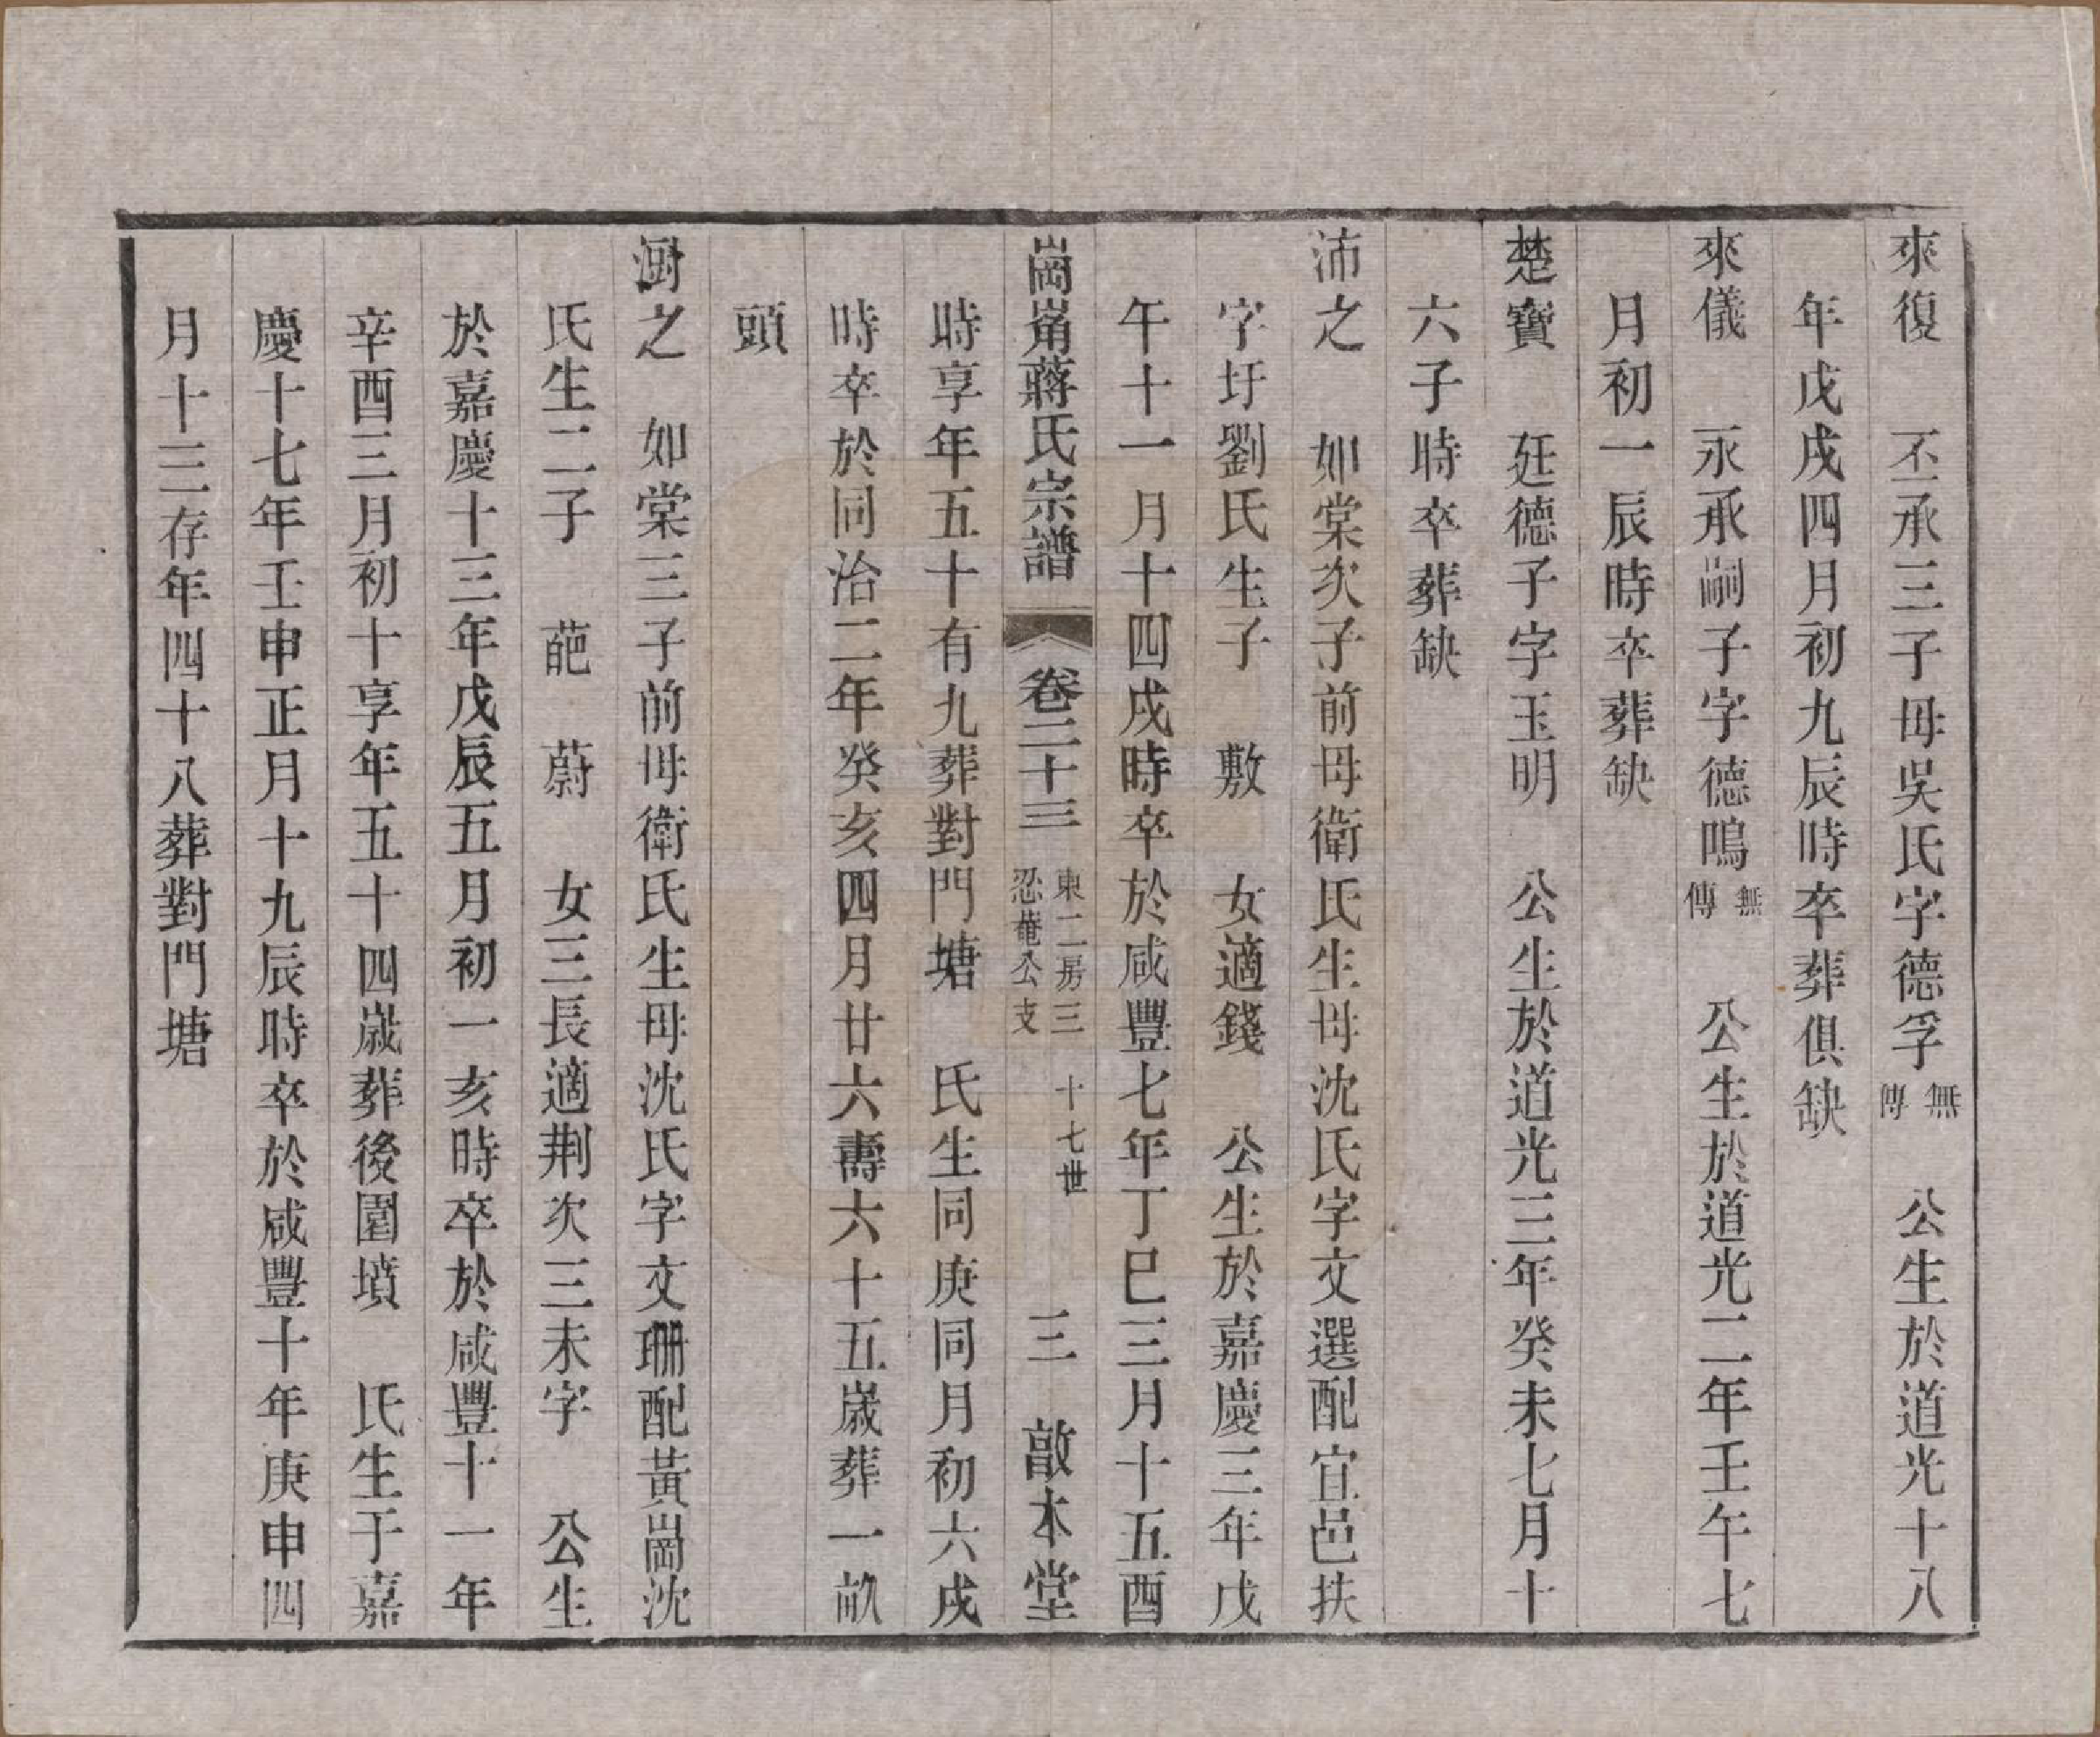 來復　丕承三子母吳氏字德孚無傳　公生於道光十八
年戊戌四月初九辰時卒葬俱缺
來儀　永承嗣子字德鳴無傳　公生於道光二年壬午七
月初一辰時卒葬缺
楚寶　廷德子字玉明　公生於道光三年癸未七月十
六子時卒葬缺
沛之　如棠次子前母衛氏生母沈氏字文選配宜邑扶
字圩劉氏生子　敷　女適錢　公生於嘉慶三年戊
午十一月十四戌時卒於咸豐七年丁巳三月十五酉
崗崙蔣氏宗譜　卷二十三　東二房三忍菴公支　十七世　三　敬本堂
時享年五十有九葬對門塘　氏生同庚同月初六戌
時卒於同治二年癸亥四月廿六壽六十五歲葬一畝
頭
澍之　如棠三子前母衛氏生母沈氏字文珊配黃崗沈
氏生二子　葩　蔚　女三長適荆次三未字　公生
於嘉慶十三年戊辰五月初一亥時卒於咸豐十一年
辛酉三月初十享年五十四歲葬後園墳　氏生于嘉
慶十七年壬申正月十九辰時卒於咸豐十年庚申四
月十三存年四十八葬對門塘